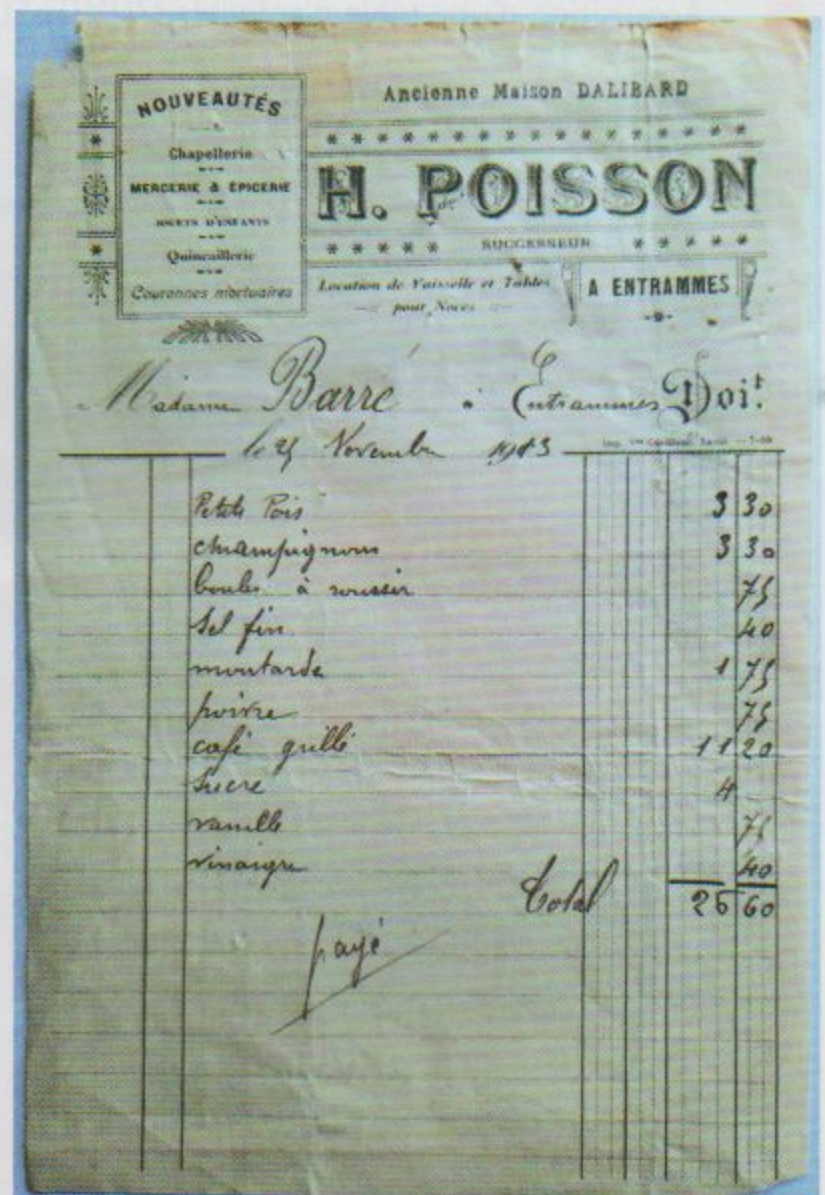 NOUVEAUTÉS
Chapellerie
MERCERIE & ÉPICERIE
JOUETS D'ENFANTS
Quincaillerie
Couronnes mortuaires
Ancienne Maison DALIBARD
H. POISSON
SUCCESSEUR
Location de Vaisselle et Tables
pour Noces
A ENTRAMMES
Madame Barré à Entrammes Doit
le 25 Novembre
Petits Pois 3 30
champignons 3 30
boules à roussir 75
Sel fin 40
moutarde 1 75
poivre 75
café grillé 11 20
Sucre 4
vanille 75
vinaigre 40
Total 26 60
payé